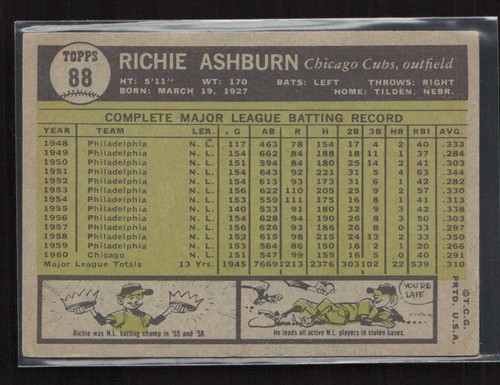 TOPPS
88
RICHIE ASHBURN Chicago Cubs, outfield
HT: 5'11" WT: 170 BATS: LEFT THROWS: RIGHT
BORN: MARCH 19, 1927 HOME: TILDEN, NEBR.
COMPLETE MAJOR LEAGUE BATTING RECORD
YEAR TEAM LEA. G AB R H 2B 3B HR RBI AVG.
1948 Philadelphia N. L. 117 463 78 154 17 4 2 40 .333
1949 Philadelphia N. L. 154 662 84 188 18 11 1 37 .284
1950 Philadelphia N. L. 151 594 84 180 25 14 2 41 .303
1951 Philadelphia N. L. 154 643 92 221 31 5 4 63 .344
1952 Philadelphia N. L. 154 613 93 173 31 6 1 42 .282
1953 Philadelphia N. L. 156 622 110 205 25 9 2 57 .330
1954 Philadelphia N. L. 153 559 111 175 16 8 1 41 .313
1955 Philadelphia N. L. 140 533 91 180 32 9 3 42 .338
1956 Philadelphia N. L. 154 628 94 190 26 8 3 50 .303
1957 Philadelphia N. L. 156 626 93 186 26 8 0 33 .297
1958 Philadelphia N. L. 152 615 98 215 24 13 2 33 .350
1959 Philadelphia N. L. 153 564 86 150 16 2 1 20 .266
1960 Chicago N. L. 151 547 99 159 16 5 0 40 .291
Major League Totals 13 Yrs. 1945 7669 1213 2376 303 102 22 539 .310
Richie was N.L. batting champ in '55 and '58.
YOU'RE LATE
He leads all active N.L. players in stolen bases.
©T.C.G.
PRTD. U.S.A.